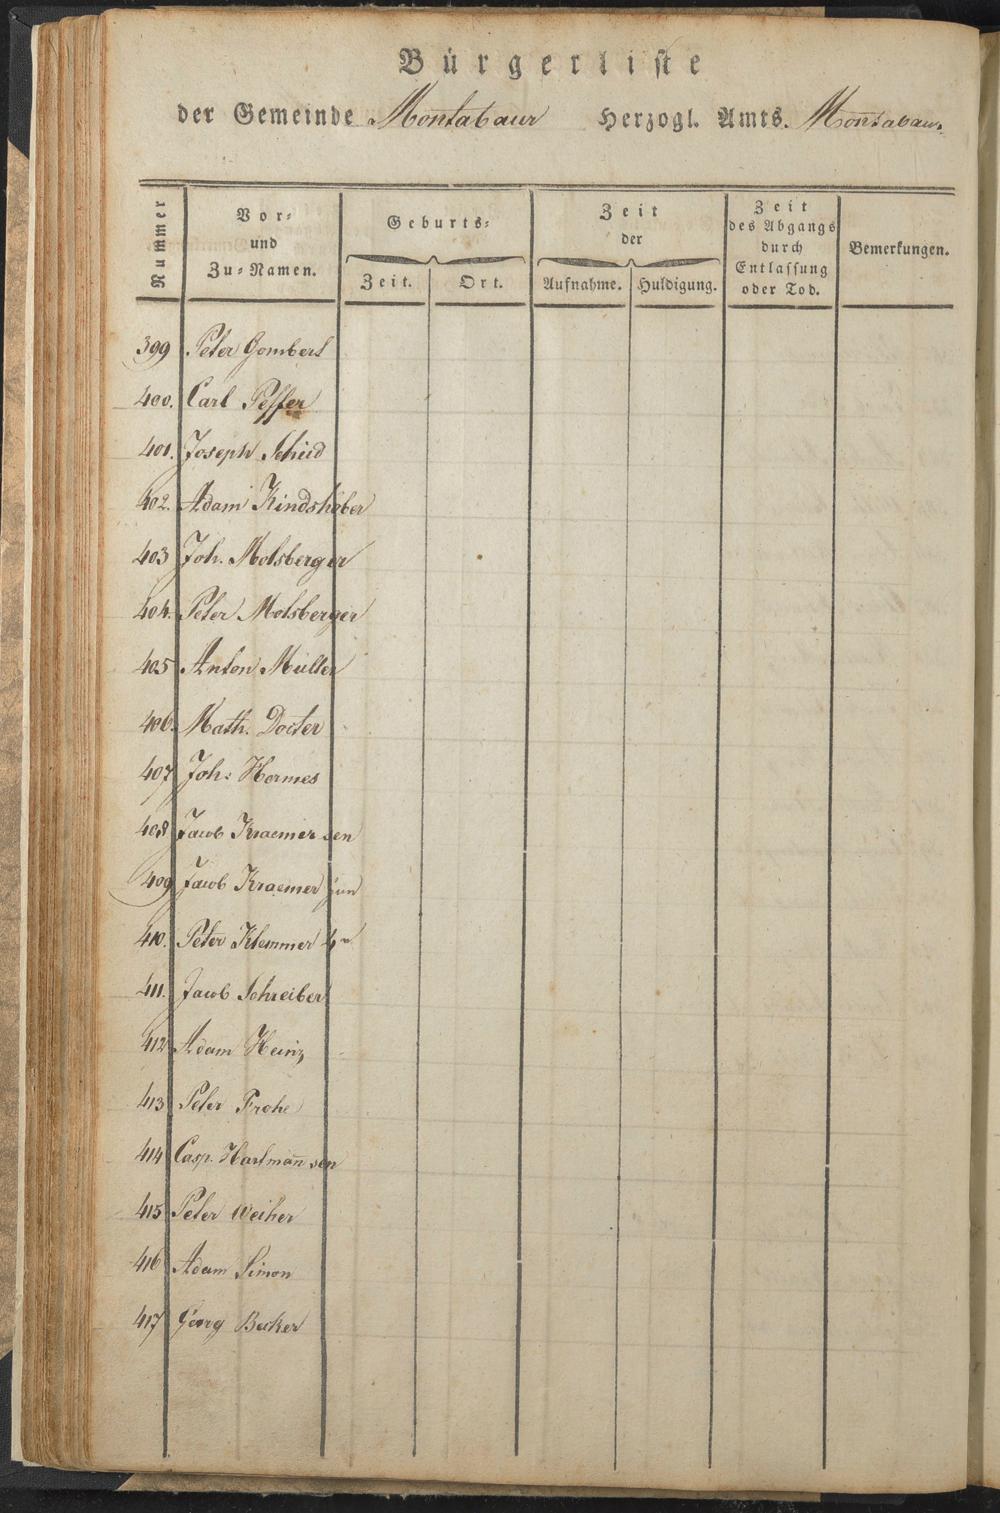 Bürgerliste
der Gemeinde Montabaur Herzogl. Amts. Montabaur
Nummer
Vor-
und
Zu-Namen.
Geburts-
Zeit. Ort.
Zeit
der
Aufnahme. Huldigung.
Zeit
des Abgangs
durch
Entlassung
oder Tod.
Bemerkungen.
399 Peter Gombert
400. Carl Peffer
401. Joseph Scheid
402. Adam Kindshober
403 Joh. Molsberger
404. Peter Molsberger
405 Anton Müller
406. Math. Docter
407 Joh: Hermes
408 Jacob Kraemer sen
409 Jacob Kraemer jun
410. Peter Klemmer
411. Jacob Schreiber
412 Adam Heinz
413 Peter Frohe
414 Casp. Hartmañ sen
415 Peter Weiher
416 Adam Simon
417 Georg Becker